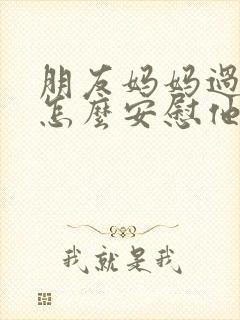 朋友妈妈過
怎麼安慰他
我就是我